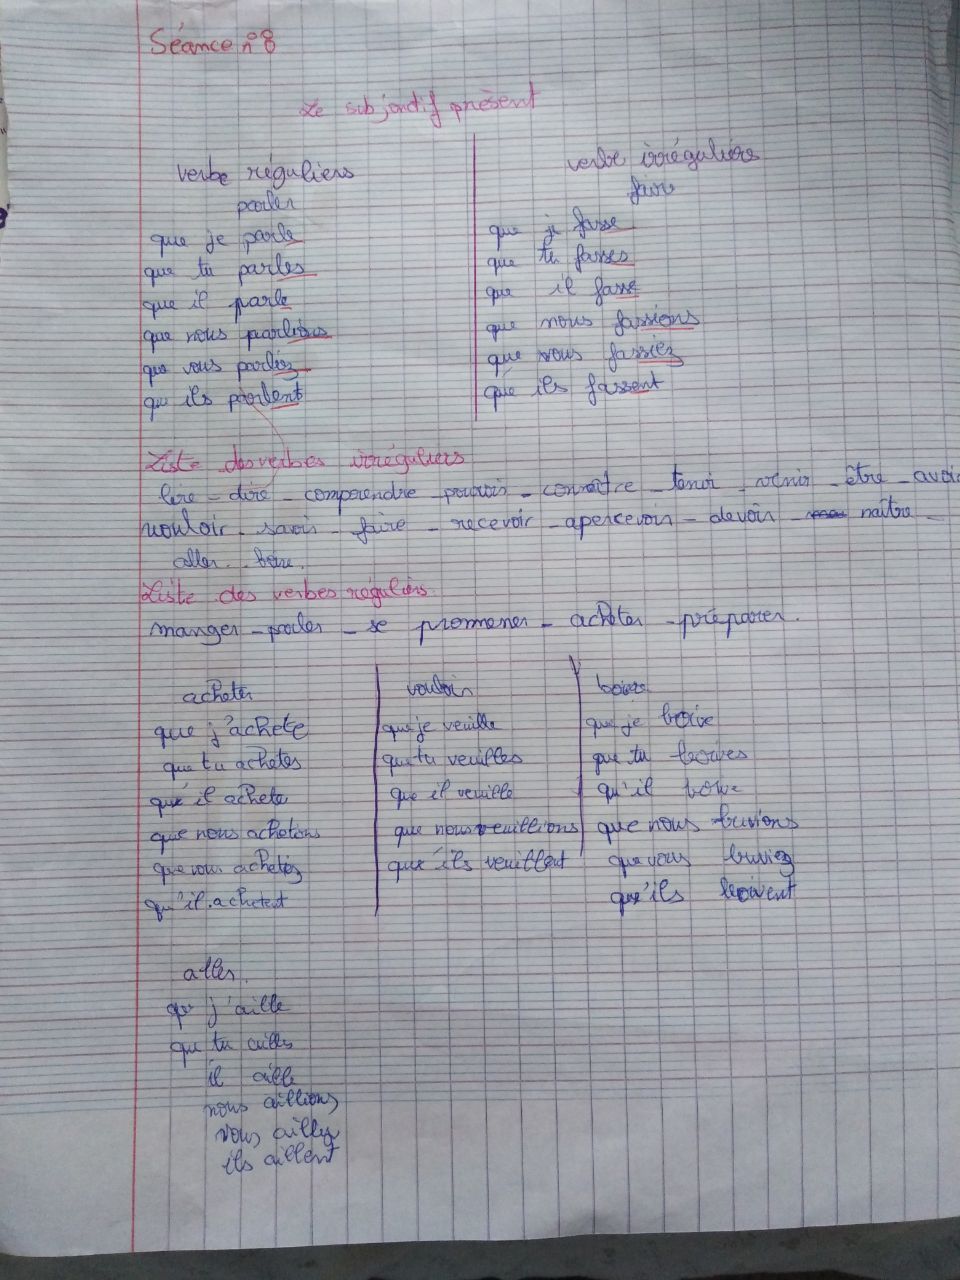 Séance n°8
Le subjonctif présent
verbe réguliers
parler
que je parle
que tu parles
que il parle
que nous parlions
que vous parliez
qu ils parlent
verbe irréguliers
faire
que je fasse
que tu fasses
que il fasse
que nous fassions
que vous fassiez
que ils fassent
Liste des verbes irréguliers
lire - dire - comprendre - pouvoir - connaître - tenir - venir - être - avoir
vouloir - savoir - faire - recevoir - apercevoir - devoir - naître -
aller - boire.
Liste des verbes réguliers.
manger - parler - se promener - acheter - préparer.
acheter
que j'achete
que tu achetes
que il achete
que nous achetions
que vous achetiez
qu'il achetent
vouloir
que je veuille
que tu veuilles
que il veuille
que nous veuillions
que ils veuillent
boire
que je boive
que tu boives
qu'il boive
que nous buvions
que vous buviez
que'ils boivent
aller.
que j'aille
que tu ailles
il aille
nous aillions
vous aillez
ils aillent